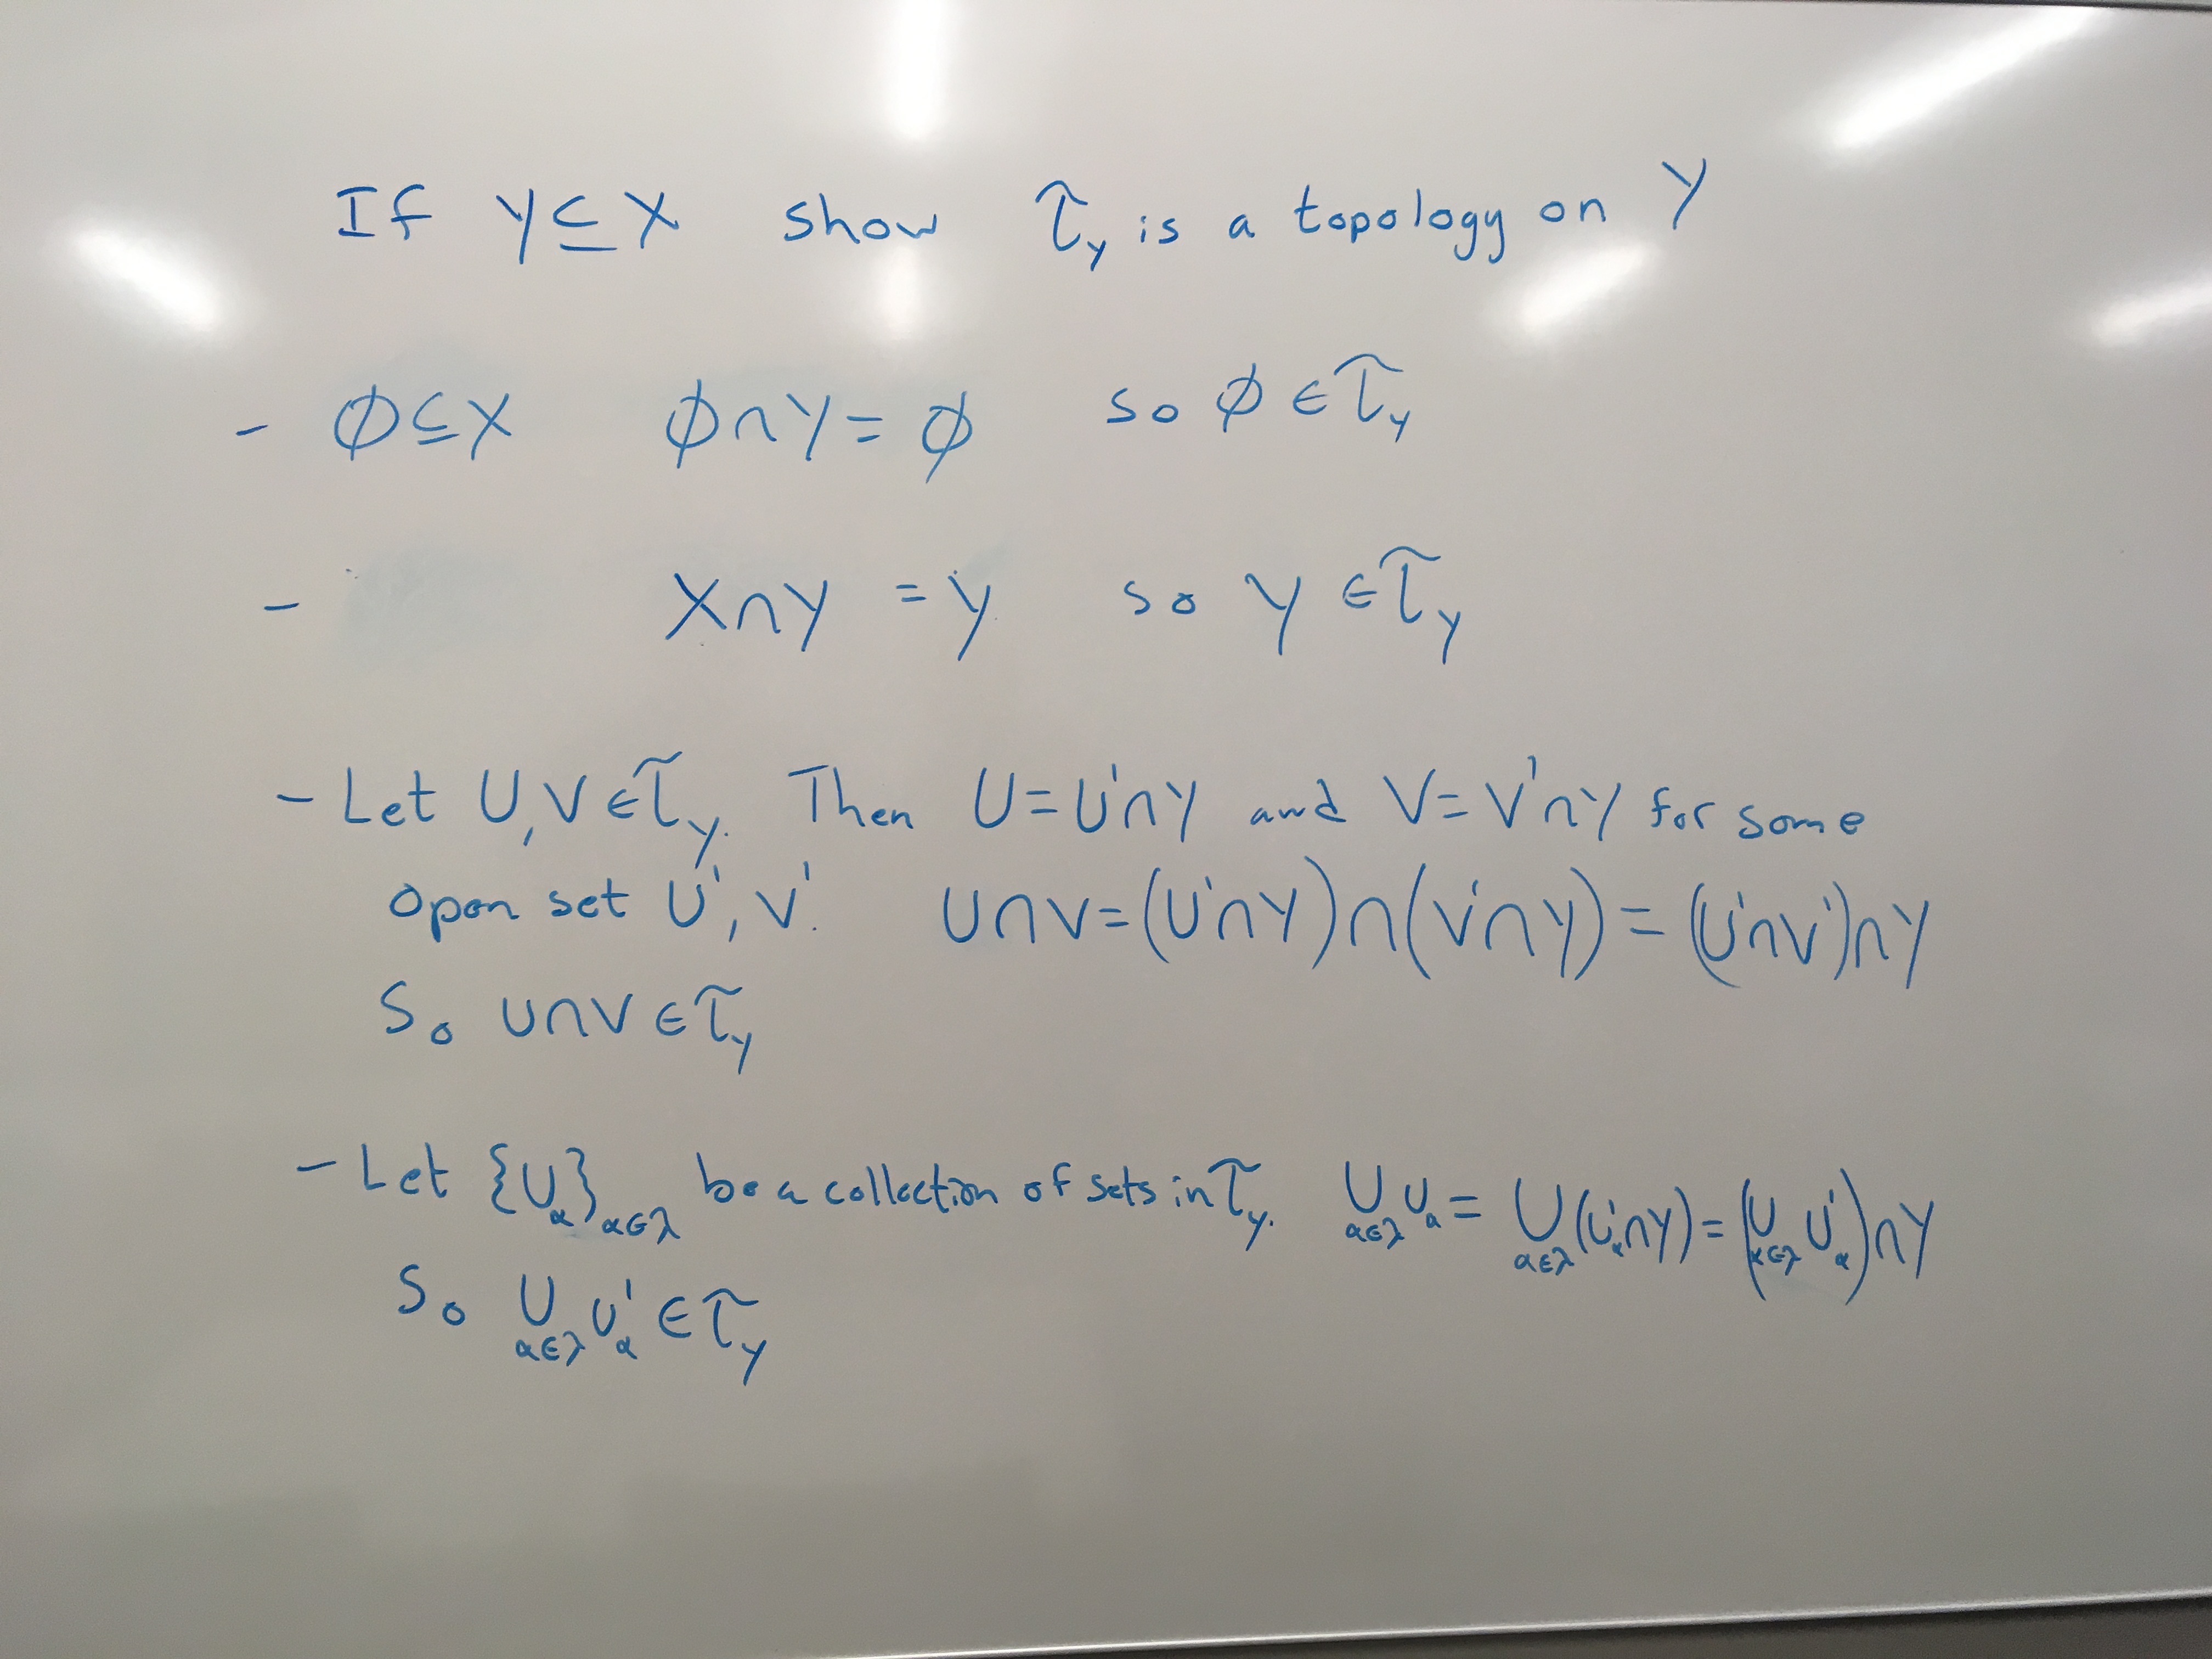 If Y⊆X show τ_Y is a topology on Y
- ∅⊆X ∅∩Y=∅ so ∅∈τ_Y
- X∩Y =Y so Y∈τ_Y
- Let U,V∈τ_Y. Then U=U'∩Y and V=V'∩Y for some
open set U',V'. U∩V=(U'∩Y)∩(V'∩Y)=(U'∩V')∩Y
So U∩V∈τ_Y
- Let {U_α}_α∈λ be a collection of sets in τ_Y. ⋃_α∈λ U_α = ⋃_α∈λ (U'_α∩Y)=(⋃_α∈λ U'_α)∩Y
So ⋃_α∈λ U'_α∈τ_Y